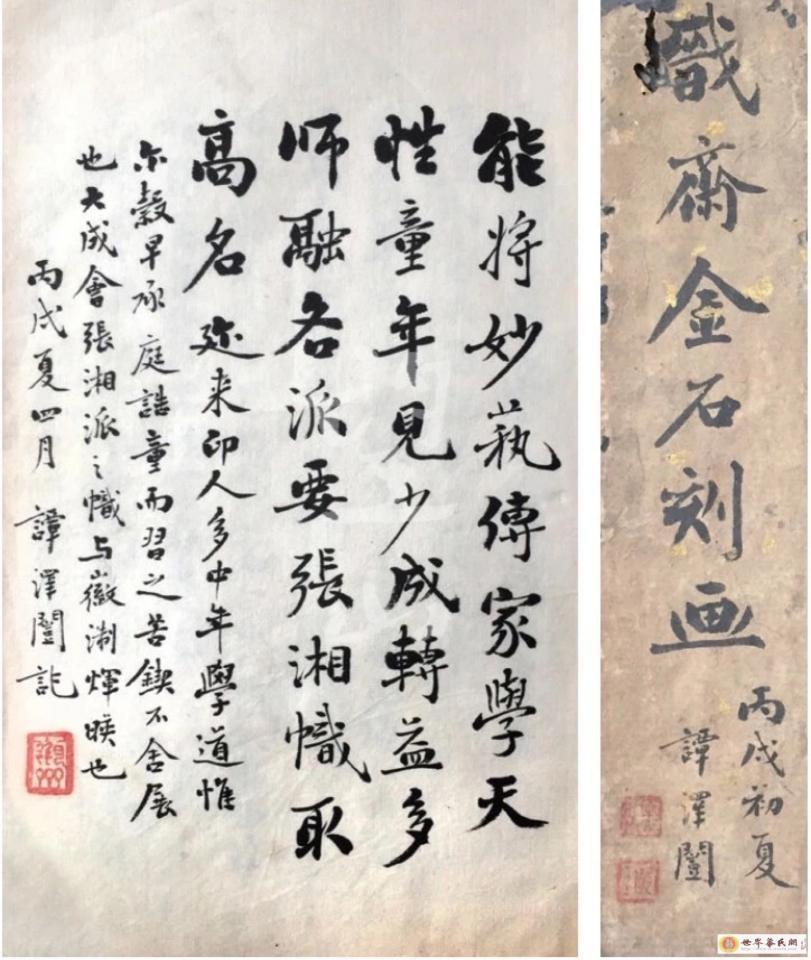 能将妙蓺傳家學天
性童年見少成轉益多
師融各派要張湘幟取
高名 迩来印人多中年學道惟
尒穀早承庭誥童而習之苦鍥不舍展
也大成會張湘派之幟与嶽淛煇暎也
丙戌夏四月 譚澤闓記
齋金石刻画
丙戌初夏
譚澤闓